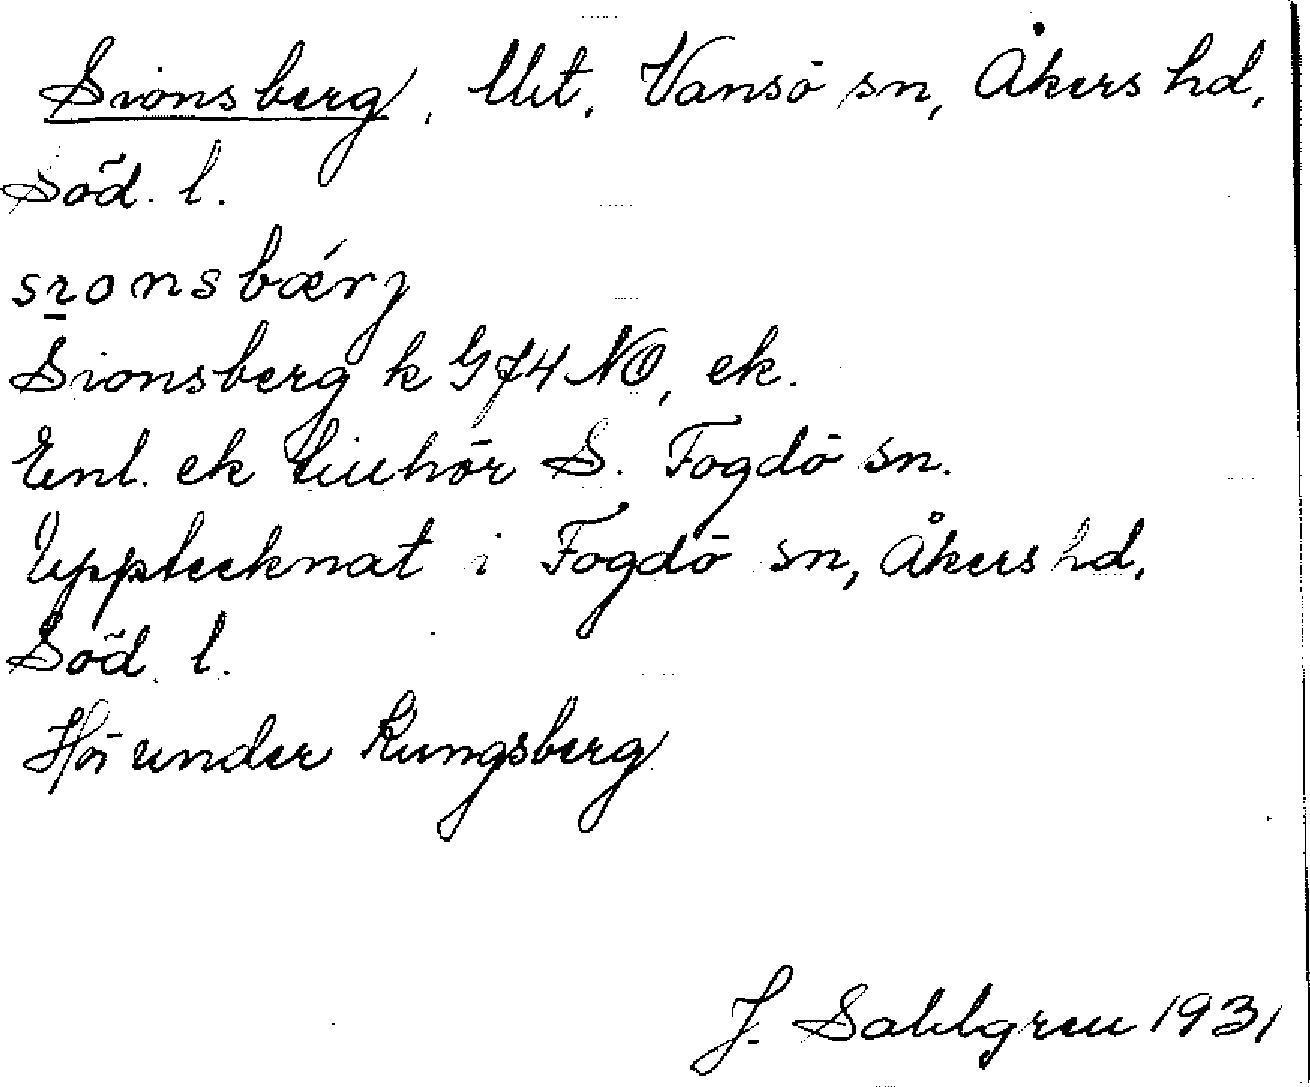 Sionsberg, Utt, Vansö sn, Åkers hd,
Söd. l.
sıonsbærj
Sionsberg k G f4 NO, ek.
Enl. ek tillhör S. Fogdö sn.
Upptecknat i Fogdö sn, Åkers hd,
Söd. l.
Hör under Kungsberg
J. Sahlgren 1931